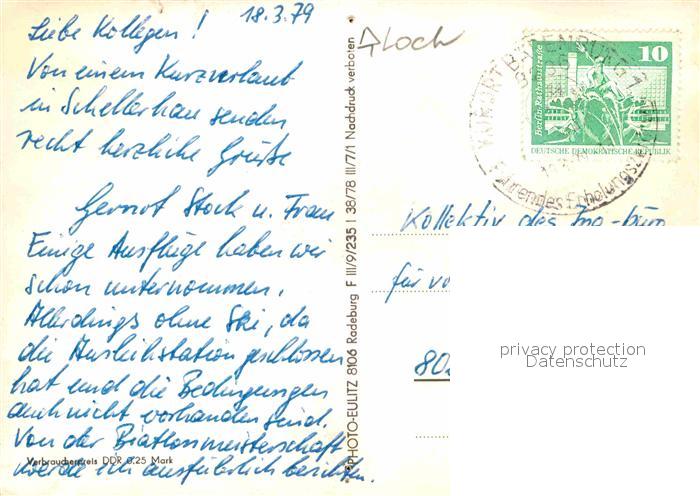 18.3.79
Liebe Kollegen!
Von einem Kurzurlaub
in Schellerhau senden
recht herzliche Grüße
Gernot Stock u. Frau
Einige Ausflüge haben wir
schon unternommen.
Allerdings ohne Ski, da
die Ausleihstation geschlossen
hat und die Bedingungen
auch nicht vorhanden sind.
Von der Biatlonmeisterschaft
werde ich ausführlich berichten.
Verbraucherpreis DDR 0,25 Mark
PHOTO-EULITZ 8106 Radeburg F III/9/235 I 38/78 III/7/1 Nachdruck verboten
Loch
KURORT BÄRENBURG
Erholungs
10
Berlin, Rathausstraße
DEUTSCHE DEMOKRATISCHE REPUBLIK
Kollektiv des Ing-büro
für
80
privacy protection
Datenschutz